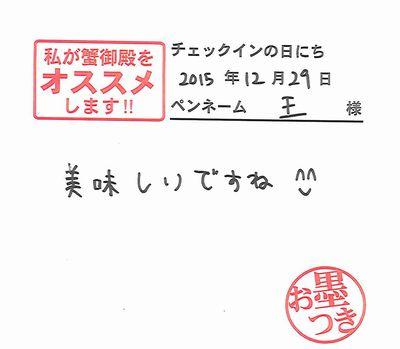 私が蟹御殿を
オススメ
します!!
チェックインの日にち
2015年12月29日
ペンネーム 王 様
美味しいですね ^^
お墨つき